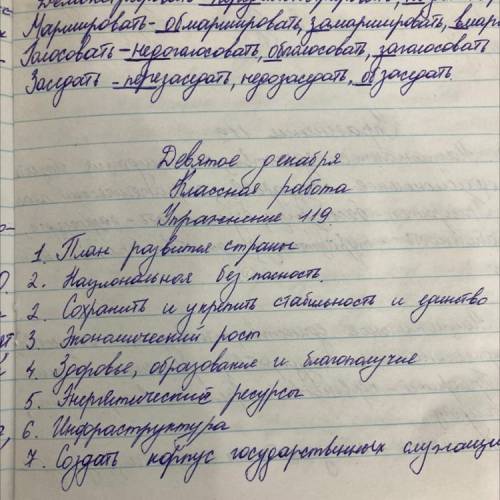 Маршировать - обмаршировать, замаршировать, вмарш
Голосовать - недоголосовать, обголосовать, заголосовать
Заседать - перезаседать, недозаседать, обзаседать.
Девятое декабря
Классная работа
Упражнение 119.
1. План развития страны
2. Национальная безпасность.
2. Сохранить и укрепить стабильность и единство
3. Экономический рост
4. Здоровье, образование и благополучие
5. Энергетические ресурсы
6. Инфраструктура
7. Создать корпус государственных служащи